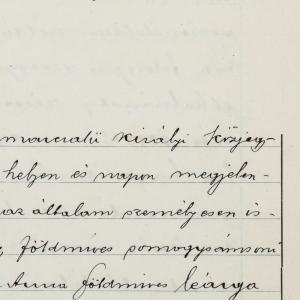 marcalii királyi közjegy-
helyen és napon megjelen-
az általam személyesen is-
földmives somogysámsoni
Anna földmives leánya